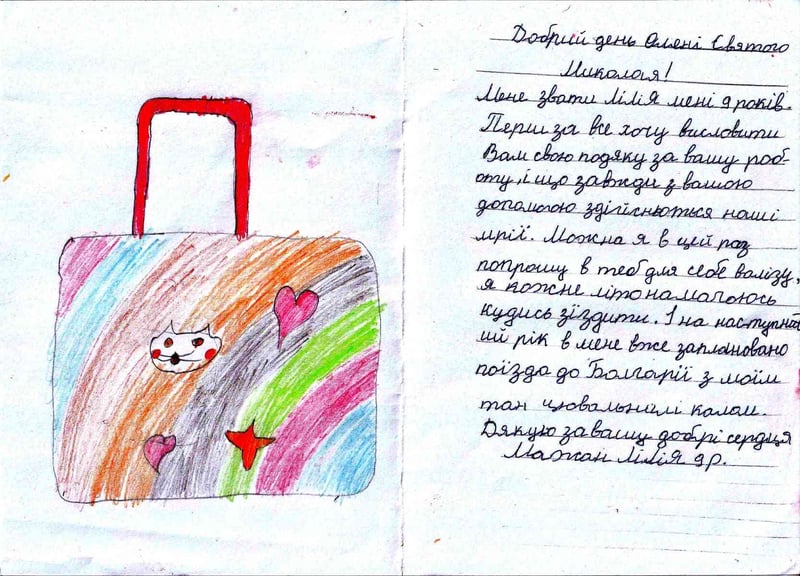 Добрий день Олені Святого
Миколоя!
Мене звати Лілія мені 9 років.
Перш за все хочу висловити
Вам свою подяку за вашу роб-
оту, і що завжди з вашою
допомогою здійснюються наші
мрії. Можна я в цей раз
попрошу в теб для себе валізу,
я кожне літо намагаюсь
кудись зїздити. І на наступн
ий рік в мене вже заплановано
поїзда до Болгарії з моїм
танцювальним колом.
Дякую за вашу добрі сердця
Мажан Лілія 9 р.